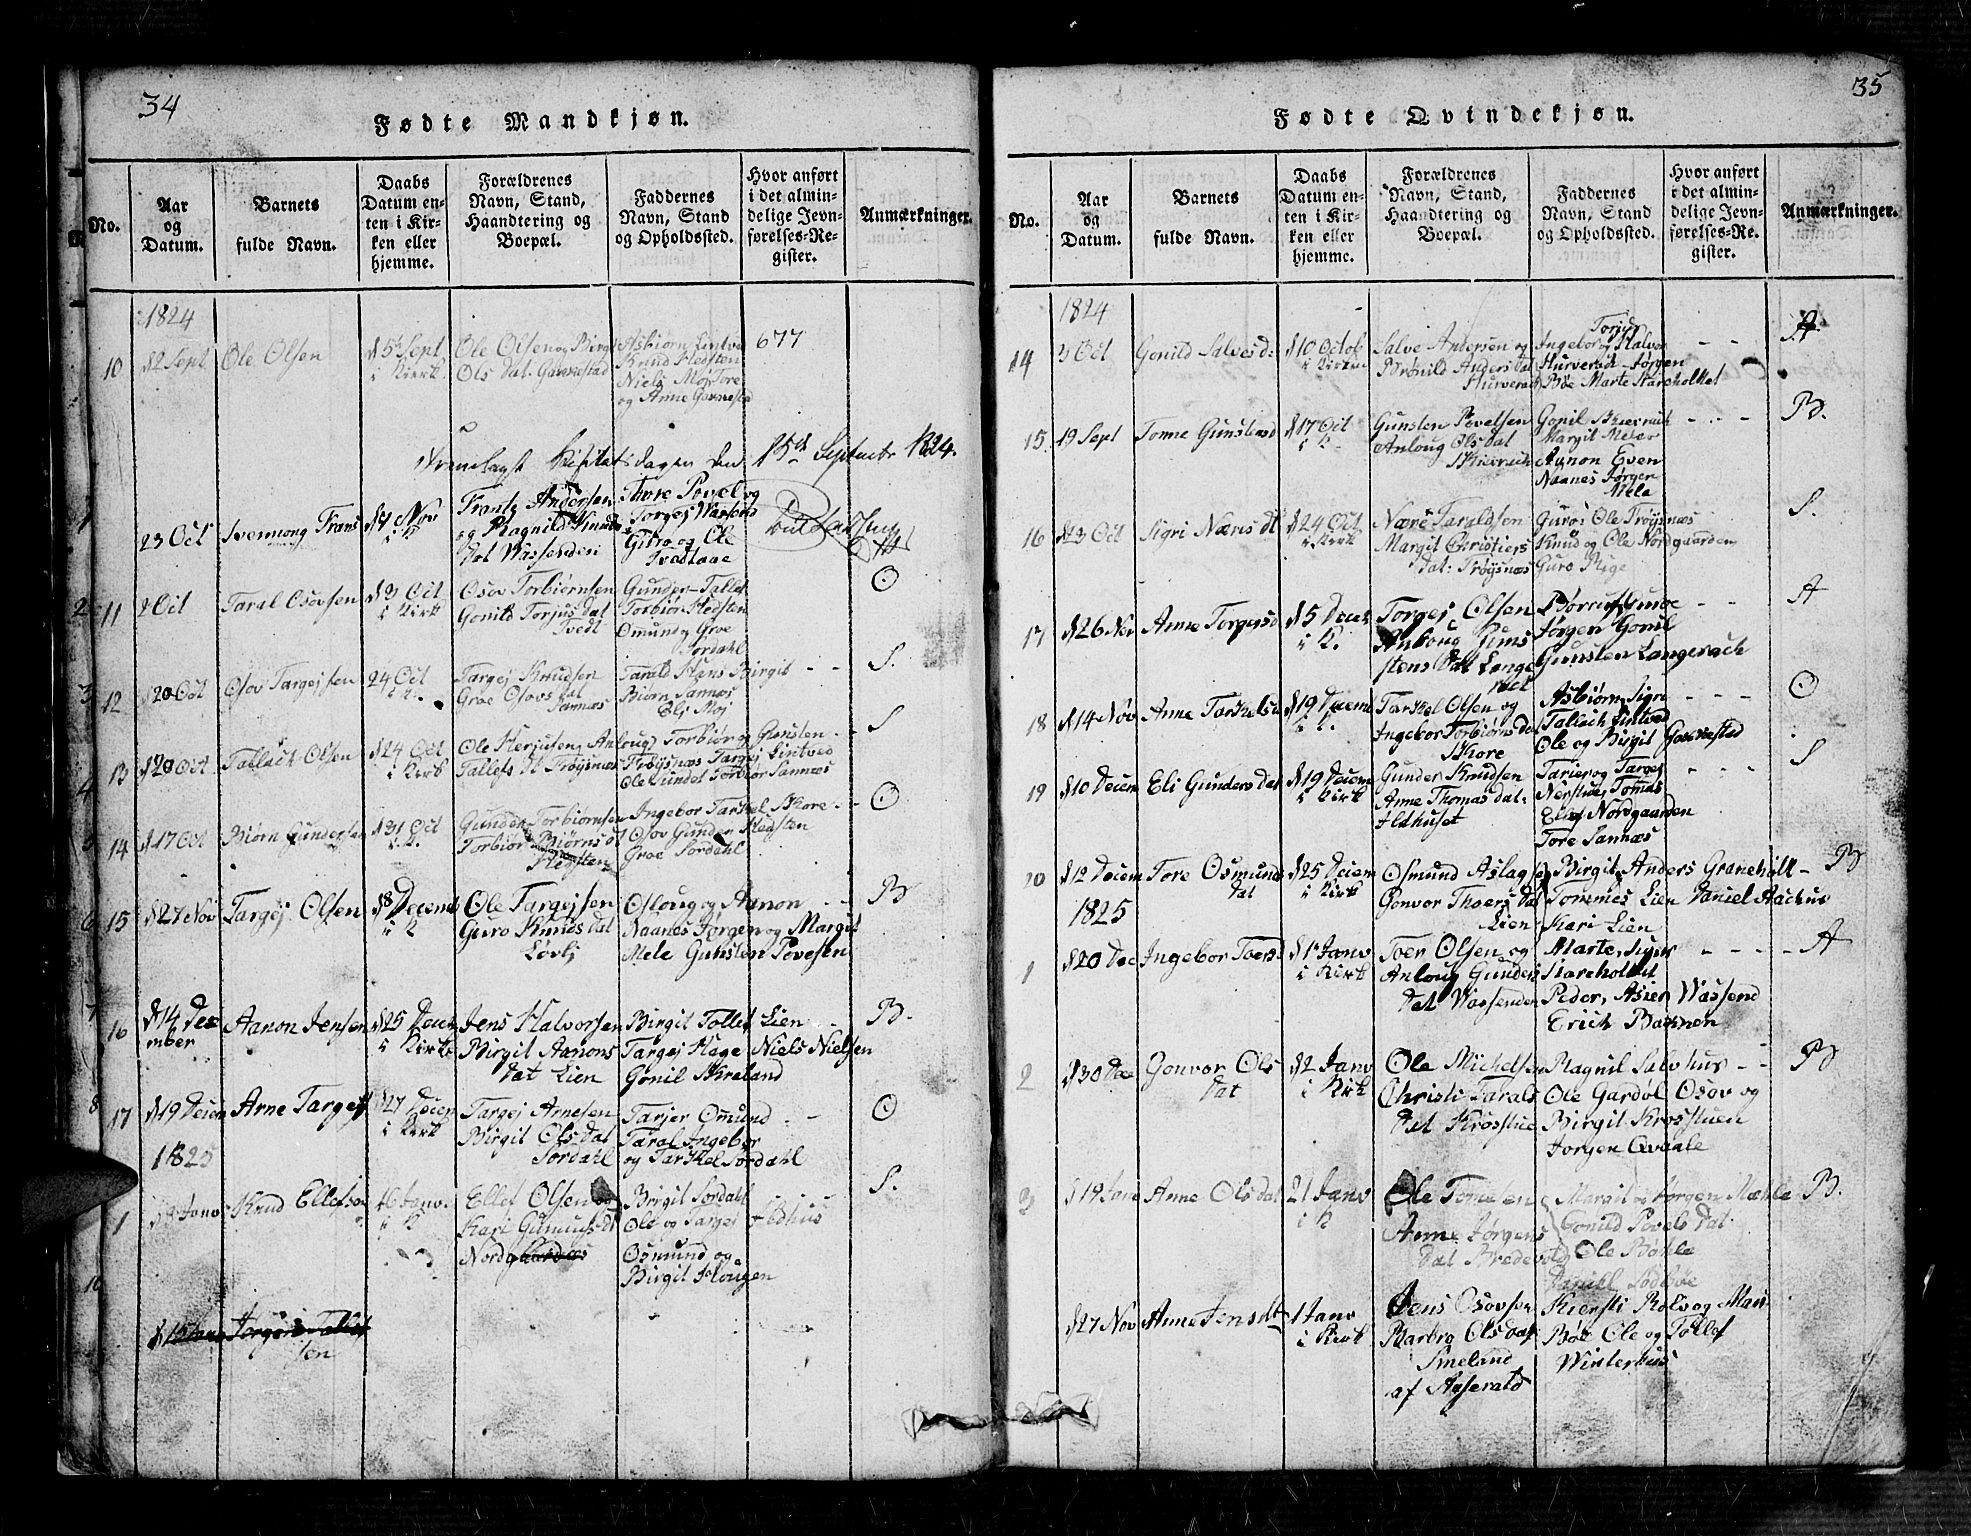 34
Fødte Mandkjøn.
No.
Aar
og
Datum.
Barnets
fulde Navn.
Daabs
Datum en-
ten i Kir-
ken eller
hjemme.
Forældrenes
Navn, Stand,
Haandtering og
Boepæl.
Faddernes
Navn, Stand
og Opholdssted.
Hvor anført
i det almin-
delige Jevn-
førelses-Re-
gister.
Anmærkninger.
1824
10
12 Sept
Ole Olsen
i Kirk
Ole Olsen og Birgit
Ols dat. Gavnestad
Asbiørn Lintve
Knud Hedsten
Niels Moj Tore
og Anne Gavnestad
677
dagen den 15de Septembr 1824.
1
23 Oct
7 Nov
i K
Frantz Andersen
og Ragnild Knuds
Dat Wassenden
Thore Povel og
Torgej Wassend
Guro og Ole
Tvedtaae
2
11
Taral Osovsen
3 Oct
i Kirk
Osov Torbiørnsen
Gonild Torjus Dat
Tvedt
Gunder Tallef
Torbiør Hedsten
Omund Groe
Sordahl
O
3
12
20 Oct
Osov Targejsen
24 Oct
i K.
Targej Knudsen
Groe Osovs dat
Sannæs
Tarald Hans Birgit
Biørn Sannæs
Elj Moj
S.
4
13
20 Oct
Tallack Olsen
24 Oct
i Kirk
Ole Herjusen Anloug
Tallefs Dt Trøysnæs
Torbiør og Gunsten
Trøysnæs Targej Lintved
Ole Lundet Torbiør Sannæs
S
5
14
17 Oct
Biørn Gundersen
31 Oct
i K.
Gunder Torbiørnsen
Torbiør Biørns dt
Hedsten
Ingebor Tarkel Skore
Osov Gunder Hedsten
Groe Sordahl
O
6
15
27 Nov
Targej Olsen
8 Decemb
i K
Ole Targejsen
Guro Knuds Dat
Løvlj
Osloug og Aanon
Naanes Jørgen og Margit
Mele Gunsten Povelsen
B
7
16
14 Dec
mber
Aanon Jensen
25 Decem
i Kirk
Jens Halvorsen
Birgit Aanons
Dat Lien
Birgit Tollef Lien
Targej Hage Niels Nielsen
Gonil Skreland
B.
8
17
19 Decem
Arne Targejs
27 Decem
i Kirk
Targej Arnesen
Birgit Ols Dat
Sordahl
Tarjer Omund
Taral Ingebor
og Tarkel Sordahl
O
1825
1
Knud Ellefsen
16 Janv.
i K
Ellef Olsen og
Kari Gunnufs Dt
Nordgaarden
Brigit Sordahl
Ole og Targej Ildhus
Osmund og
Birgit Hougen
S.
10
sen
35
Fødte Qvindekjøn.
No.
Aar
og
Datum.
Barnets
fulde Navn.
Daabs
Datum en-
ten i Kir-
ken eller
hjemme.
Forældrenes
Navn, Stand,
Haandtering og
Boepæl.
Faddernes
Navn, Stand
og Opholdssted.
Hvor anført
i det almin-
delige Jevn-
førelses-Re-
gister.
Anmærkninger.
1824
14
3 Oct
Gonild Salvesd.
10 Octob
i Kirken
Salve Andersen og
Brønild Anders Dat
Hurverack
Torjus
Ingeborg Halvor
Hurverack Jørgen
Bøe Marte Harcholket
A
15.
19 Sept
Tonne Gunstensd
17 Oct
i K.
Gunsten Povelsen
Anloug Ols Dat
Skierrack
Gonil Skierrack
Margit Mele
Aanon Even
Naanes Jørgen
Mele
B.
16
13 Oct
Sigri Næres dt
24 Oct
i Kirk
Nære Taraldsen
Margit Christiers
Dat: Trøysnæs
Guroe Ole Trøysnæs
Knud og Ole Nordgaarden
Guro Rige
S.
17
26 Nov
Anne Torgejsd
5 Decem
i K.
Torgej Olsen
Anloug Guns
stens Datt Lange
rack
Jørgen Gonil
Gunsten Langerach
A
18
14 Nov
Anne Tarkelsd
19 Decem
i K.
Tarkel Olsen og
Ingebor Torbiørns Dat
Skore
Asbiørn Sigri
Tallach Lintved
Ole og Birgit Gavnestad
O
19
10 Decem
Eli Gunders dat
19 Decem
i Kirk
Gunder Knudsen
Anne Thomas dat:
Ildhuset
Tarier og Targej
Nerstue Tomas
Elling Nordgaarden
Tore Sannæs
S
20
12 Decem
Tore Osmunds
dat
25 Decem
i Kirk
Osmund Aslag
Gonvor Thoers Dat
Lien
Birgit Anders Graneholt
Tommes Lien Daniel Aachus
Kari Lien
B
1825
1
20 Dec
Ingebor Toersd
1 Janv
i Kirk
Toer Olsen og
Anloug Gunders
Dat Wassenden
Marte, Siger
Harcholket
Peder, Asier Wassend
Erich Bachnen
A
2
30 Dec
Gonvor Ols
Dat
2 Janv
i Kirk
Ole Michelsen
Christi Tarals
Dat Krosstue
Ragnil Salvhus
Ole Gardøl Osov og
Birgit Krosstuen
Jorgen Qvaale
B
3
19 Janv
Anne Ols dat
21 Janv
i K
Ole Tomesen
Anne Jørgens
Dat Bredevold
Margit og Jørgen Mæhle
Gonild Povels Dat
Ole Bøhle
Daniel Sødbøe
B.
27 Nov
Anne Jensdt
1 Janv
i Kirk
Jens Osovsen
Barbro Ols Dat
Smeland
af Aaserald
Kiersti Rolv og Mari
Bøe Ole og Tollef
Winterhus